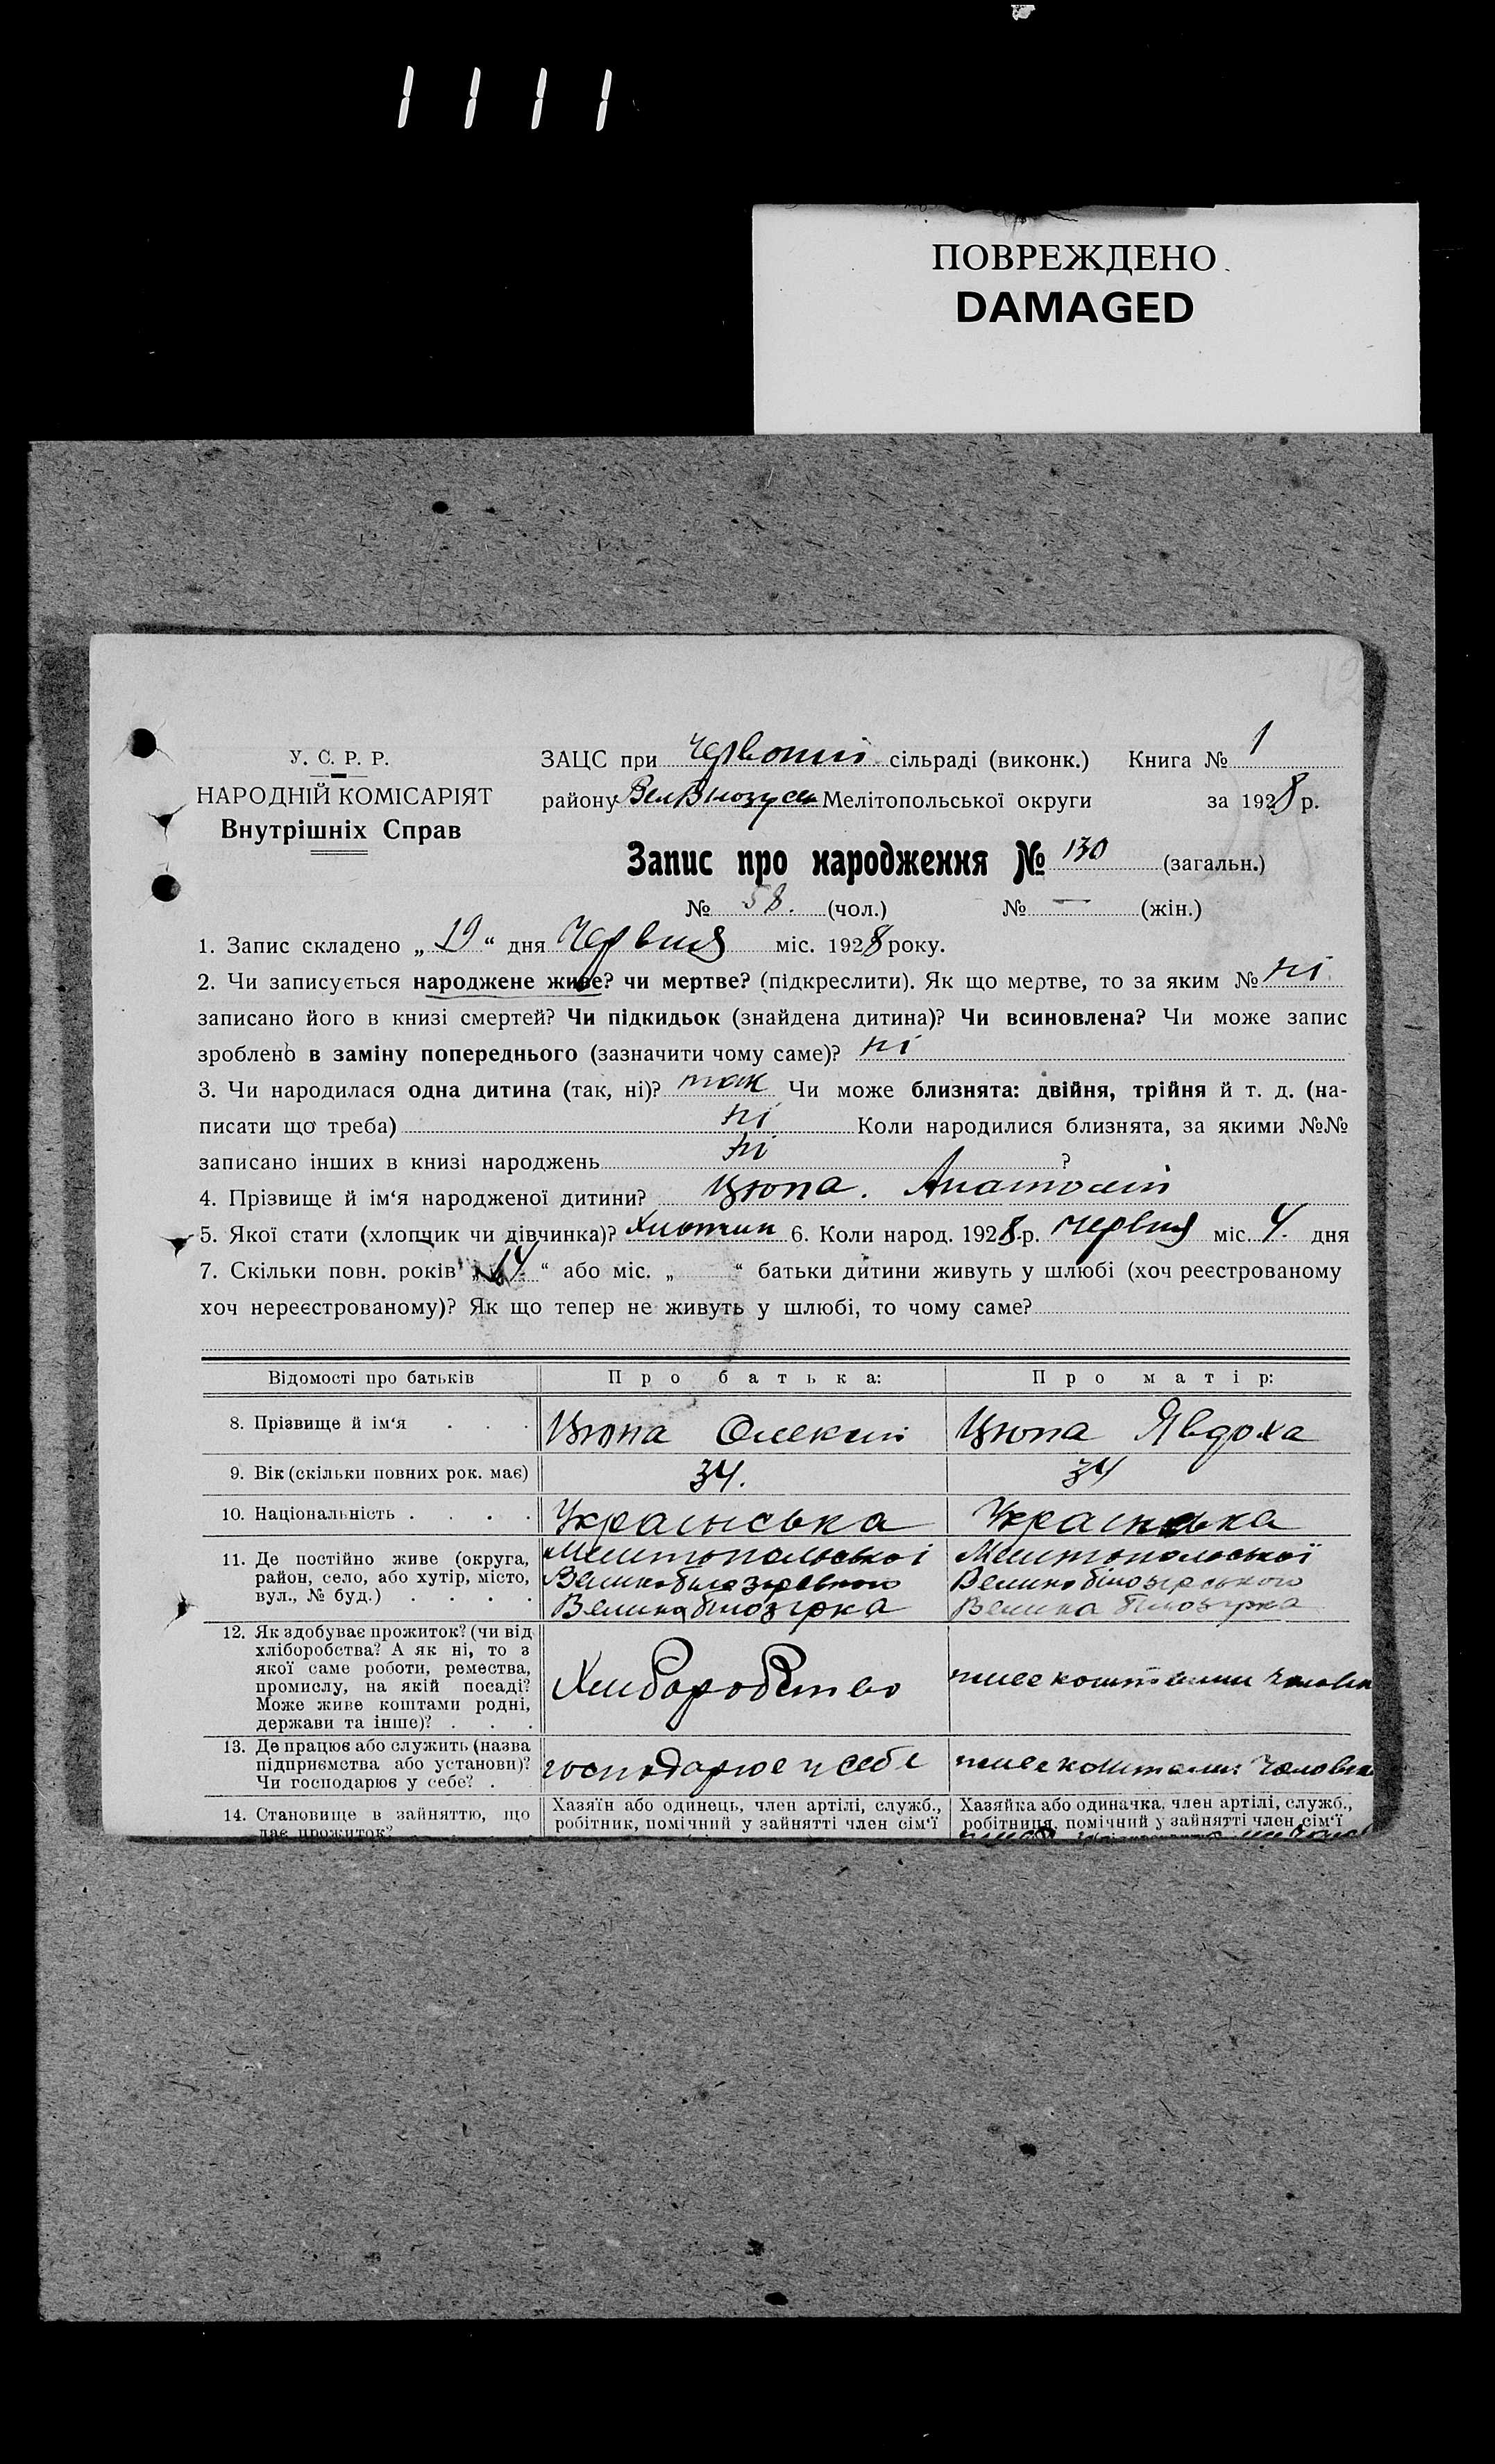 1111
ПОВРЕЖДЕНО
DAMAGED
У. С. Р. Р.
НАРОДНІЙ КОМІСАРІЯТ
Внутрішніх Справ
ЗАЦС при Червоній сільраді (виконк.) Книга № 1
району Мелітопольської округи за 1928 р.
Запис про народження № 130 (загальн.)
№ 58. (чол.) № — (жін.)
1. Запис складено „19“ дня Червня міс. 1928 року.
2. Чи записується народжене живе? чи мертве? (підкреслити). Як що мертве, то за яким № ні
записано його в книзі смертей? Чи підкидьок (знайдена дитина)? Чи всиновлена? Чи може запис
зроблено в заміну попереднього (зазначити чому саме)? ні
3. Чи народилася одна дитина (так, ні)? так Чи може близнята: двійня, трійня й т. д. (на-
писати що треба) ні Коли народилися близнята, за якими №№
записано інших в книзі народжень ні ?
4. Прізвище й ім‘я народженої дитини? Цюпа. Анатолій
5. Якої стати (хлопчик чи дівчинка)? Хлопчик 6. Коли народ. 1928 р. червня міс. 4. дня
7. Скільки повн. років „14“ або міс. „ “ батьки дитини живуть у шлюбі (хоч реєстрованому
хоч нереєстрованому)? Як що тепер не живуть у шлюбі, то чому саме?
Відомості про батьків Про батька: Про матір:
8. Прізвище й ім‘я . . . Цюпа Олексій Цюпа Явдоха
9. Вік (скільки повних рок. має) 34. 34
10. Національність . . . . Українська Українська
11. Де постійно живе (округа, Мелітопольської Мелітопольської
район, село, або хутір, місто, Великобілозірського Великобілозірського
вул., № буд.) . . . . Велика білозірка Велика білозірка
12. Як здобуває прожиток? (чи від
хліборобства? А як ні, то з
якої саме роботи, ремества,
промислу, на якій посаді?
Може живе коштами родні,
держави та інше)? . . .
Хліборобство живе коштами чоловіка
13. Де працює або служить (назва
підприємства або установи)?
Чи господарює у себе? .
господарює у себе живе коштами чоловіка
14. Становище в зайняттю, що Хазяїн або одинець, член артілі, служб., Хазяйка або одиначка, член артілі, служб.,
дає прожиток? робітник, помічний у зайнятті член сім‘ї робітниця, помічний у зайнятті член сім‘ї